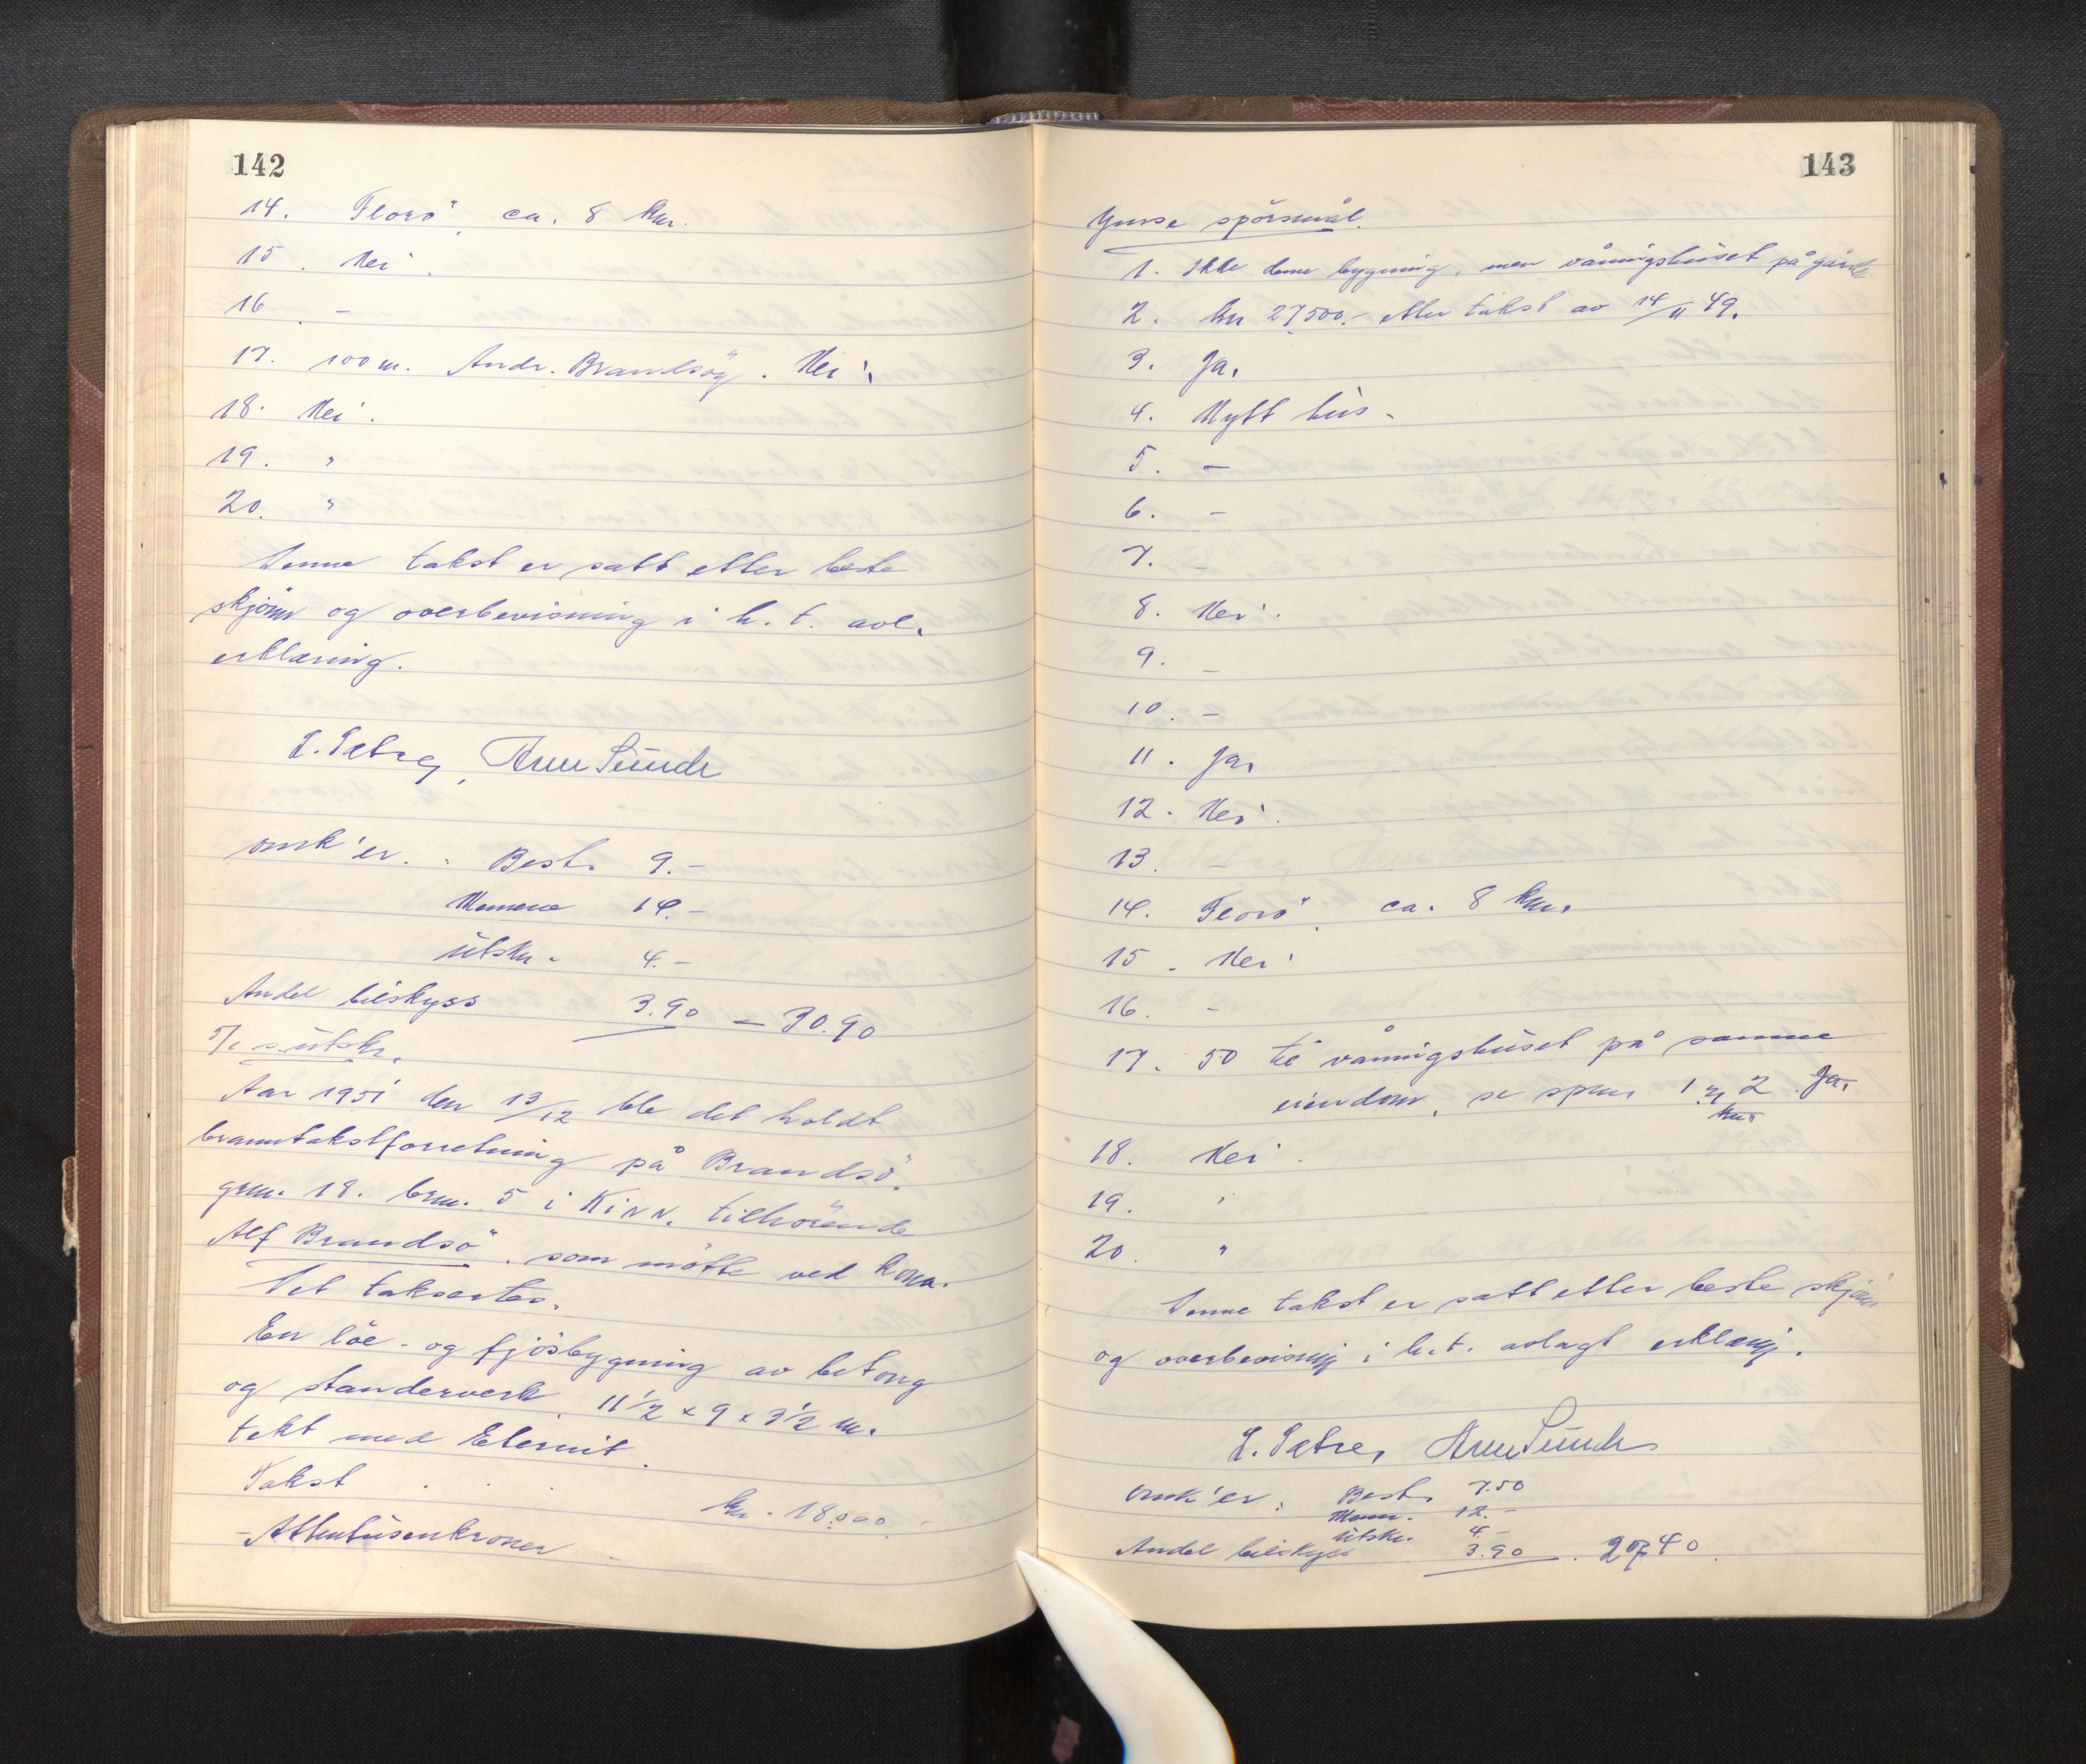 142
14. Florö, ca. 8 km.
15. Nei.
16. -
17. 100 m. Andr. Brandsöy. Nei.
18. Nei.
19. "
20. "
Denne takst er satt etter beste
skjönn og overbevisning i h. t. avl.
erklæring.
L. Sætre, Arne Sunde
Omk'er. : Best. 9.-
Mennene 14.-
Utskr. 4.-
Andel bilskyss 3.90 = 30.90
s. utskr.
Aar 1951 den 13/12 ble det holdt
branntakstforretning på Brandsö.
grnr. 18. brnr. 5 i Kinn, tilhörende
Alf Brandsö, som mötte ved kona.
Det taksertes.
En löe- og fjösbygning av betong
og standerverk, 11 1/2 x 9 x 3 1/2 m.
tekt med Eternit.
Takst . . . kr. 18.000.-
- Attentusenkroner -
143
Ymse spörsmål.
1. Ikke denne bygning, men våningshuset på gården
2. Kr 27500.- etter takst av 14/11 49.
3. Ja.
4. Nytt hus.
5. -
6. -
7. -
8. Nei.
9. -
10. -
11. Ja,
12. Nei.
13. -
14. Florö, ca. 8 km.
15. Nei
16. -
17. 50 til våningshuset på samme
eiendom, se spm 1 og 2. Ja.
18. Nei.
19. "
20. "
Denne takst er satt etter beste skjönn
og overbevisning i h.t. avlagt erklæring.
L. Sætre, Arne Sunde
Omk'er: Best. 7.50
Menn. 12.-
Utskr. 4.-
Andel bilskyss 3.90 . 27.40